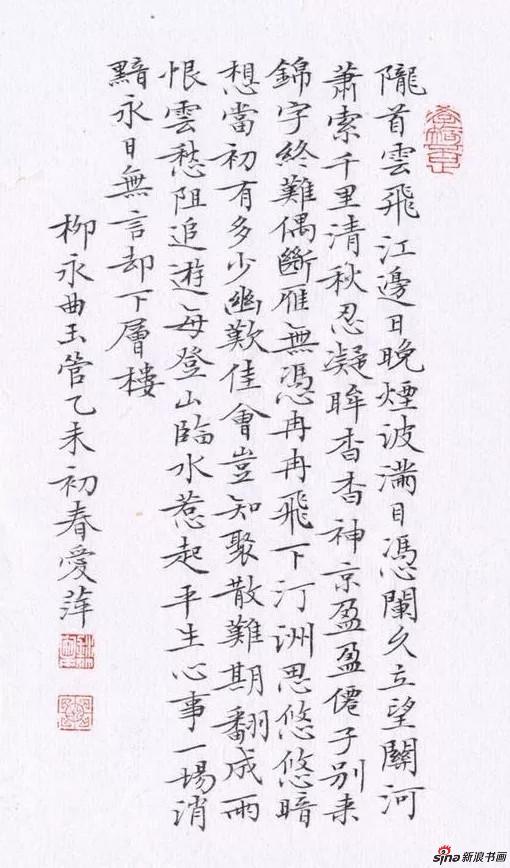 隴首雲飛江邊日晚煙波滿目憑闌久立望關河
蕭索千里清秋忍凝眸杳杳神京盈盈僊子別来
錦字終難偶斷雁無憑冉冉飛下汀洲思悠悠暗
想當初有多少幽歡佳會豈知聚散難期翻成雨
恨雲愁阻追遊每登山臨水惹起平生心事一場消
黯永日無言却下層樓
柳永曲玉管乙未初春愛萍
sina新浪书画